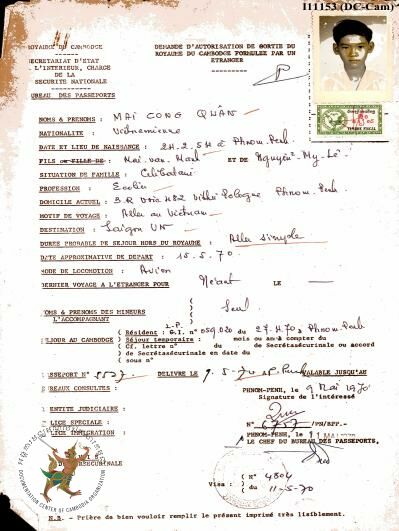 111153 (DC-Cam)
ROYAUME DU CAMBODGE
DEMANDE D'AUTORISATION DE SORTIE DU
ROYAUME DU CAMBODGE FORMULEE PAR UN
ETRANGER
SECRETARIAT D'ETAT
A L'INTERIEUR, CHARGE
DE LA
SECURITE NATIONALE
BUREAU DES PASSEPORTS
TIMBRE FISCAL
NOMS & PRENOMS : MAI CONG QUÂN
NATIONALITE : Vietnamienne
DATE ET LIEU DE NAISSANCE : 24.2.54 à Phnom.Penh
FILS ou FILLE DE : Mai van ET DE Nguyên My Lê
SITUATION DE FAMILLE : Célibataire
PROFESSION : Ecolier
DOMICILE ACTUEL : Phnom.Penh
MOTIF DE VOYAGE : Aller au Vietnam
DESTINATION : Saigon VN
DUREE PROBABLE DE SEJOUR HORS DU ROYAUME : Aller simple
DATE APPROXIMATIVE DE DEPART : 15.5.70
MODE DE LOCOMOTION : Avion
DERNIER VOYAGE A L'ETRANGER POUR Néant LE —
NOMS & PRENOMS DES MINEURS
L'ACCOMPAGNANT
Seul
I.P.
Résident : G.I. n° 059.020 du 27.4.70 à Phnom-Penh
SEJOUR AU CAMBODGE Séjour temporaire : mois ou ans à compter du
Cf. lettre n° du de Secrétasécurinale ou accord
de Secrétasécurinale en date du
sous n°
PASSEPORT N° 5527 DELIVRE LE 9.5.70 VALABLE JUSQU'AU
BUREAUX CONSULTES :
PHNOM-PENH, le 9 Mai 1970
Signature de l'intéressé
IDENTITE JUDICIAIRE :
POLICE SPECIALE :
POLICE IMMIGRATION :
N° 6757/PN/BPP.-
PHNOM-PENH, le 11 MAI 1970
LE CHEF DU BUREAU DES PASSEPORTS,
Visa :
N° 4804
du 11-5-70
DOCUMENTATION CENTER OF CAMBODIA ORGANIZATION
N.B - Prière de bien vouloir remplir le présent imprimé très lisiblement.